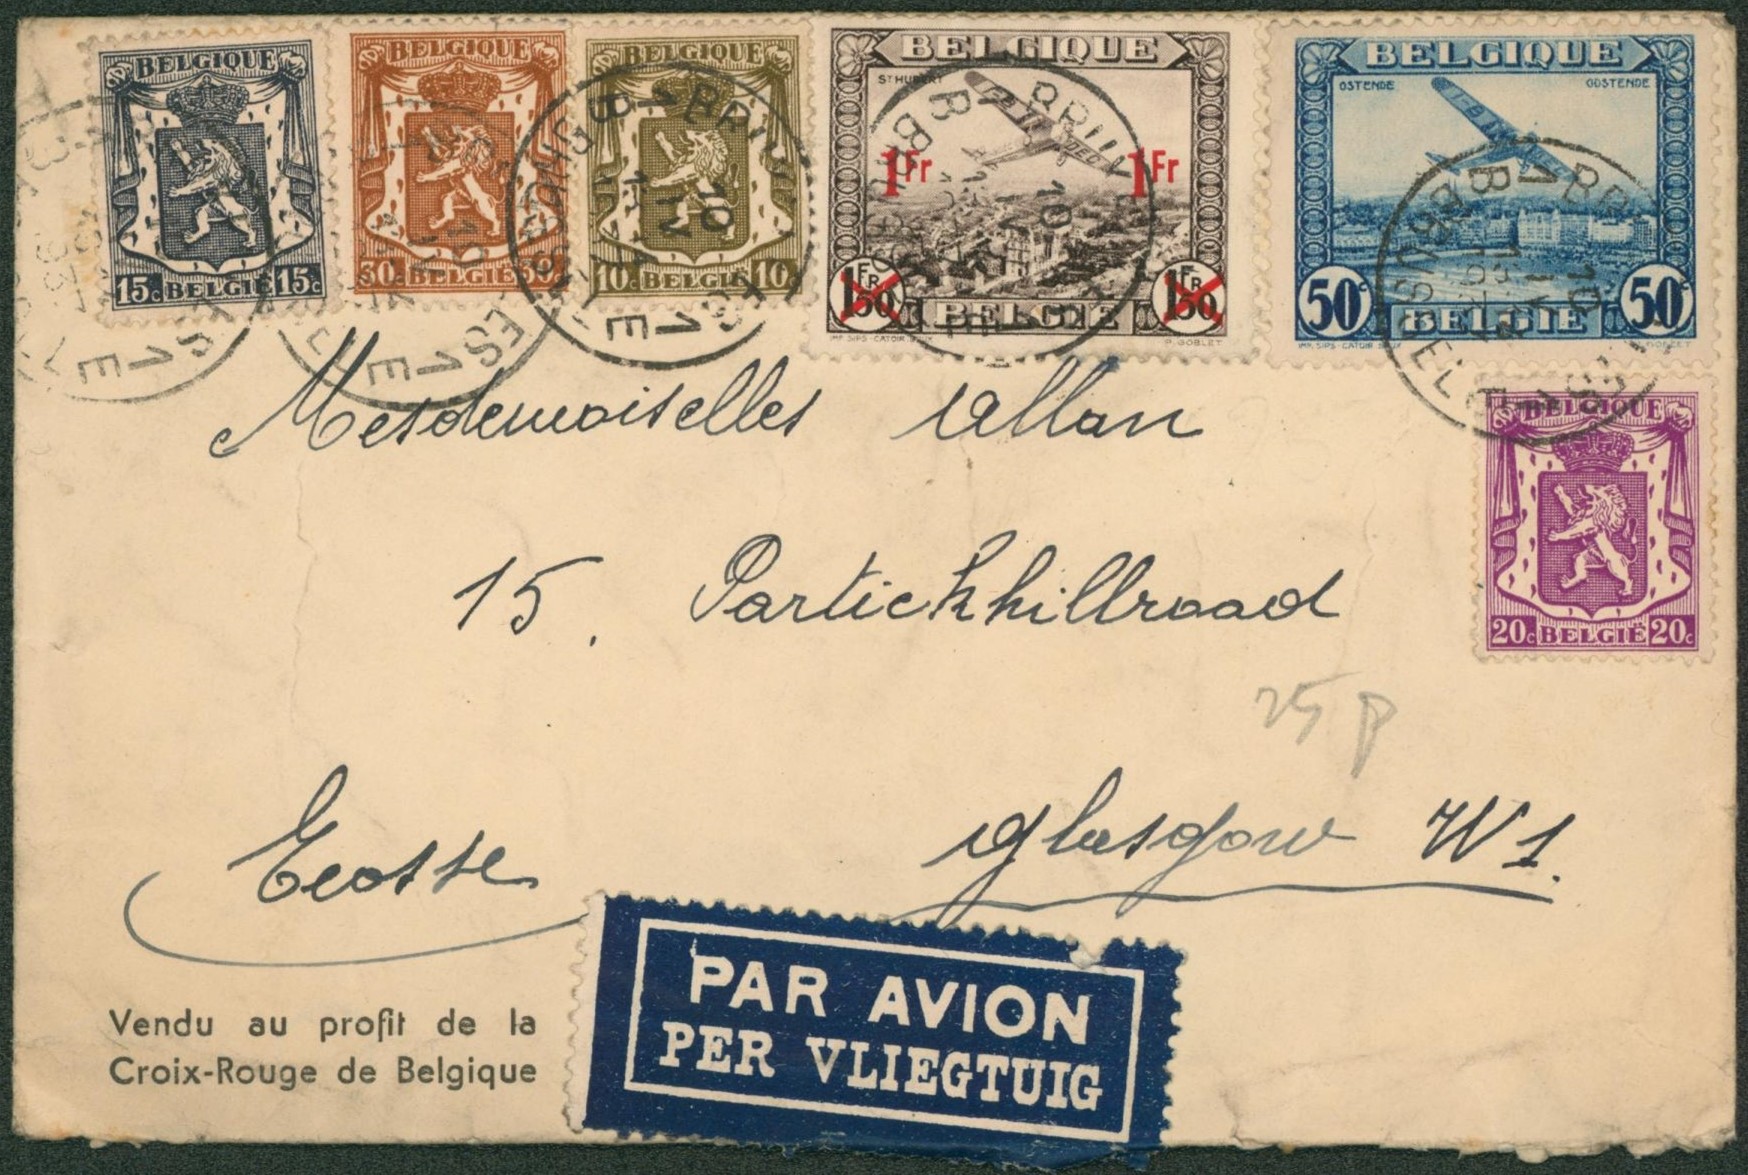 BELGIQUE
15c BELGIË 15c
BELGIQUE
30c BELGIË 30c
BELGIQUE
10c BELGIË 10c
BELGIQUE
ST HUBERT
1Fr 1Fr
1FR50 BELGIE 1FR50
IMP. SIPS - CATOIR - SIX
P. GOBLET
BELGIQUE
OSTENDE OOSTENDE
50c BELGIE 50c
BELGIQUE
20c BELGIË 20c
Mesdemoiselles Allan
15, Partickhillroad
25 p
Glasgow W1.
Ecosse
Vendu au profit de la
Croix-Rouge de Belgique
PAR AVION
PER VLIEGTUIG